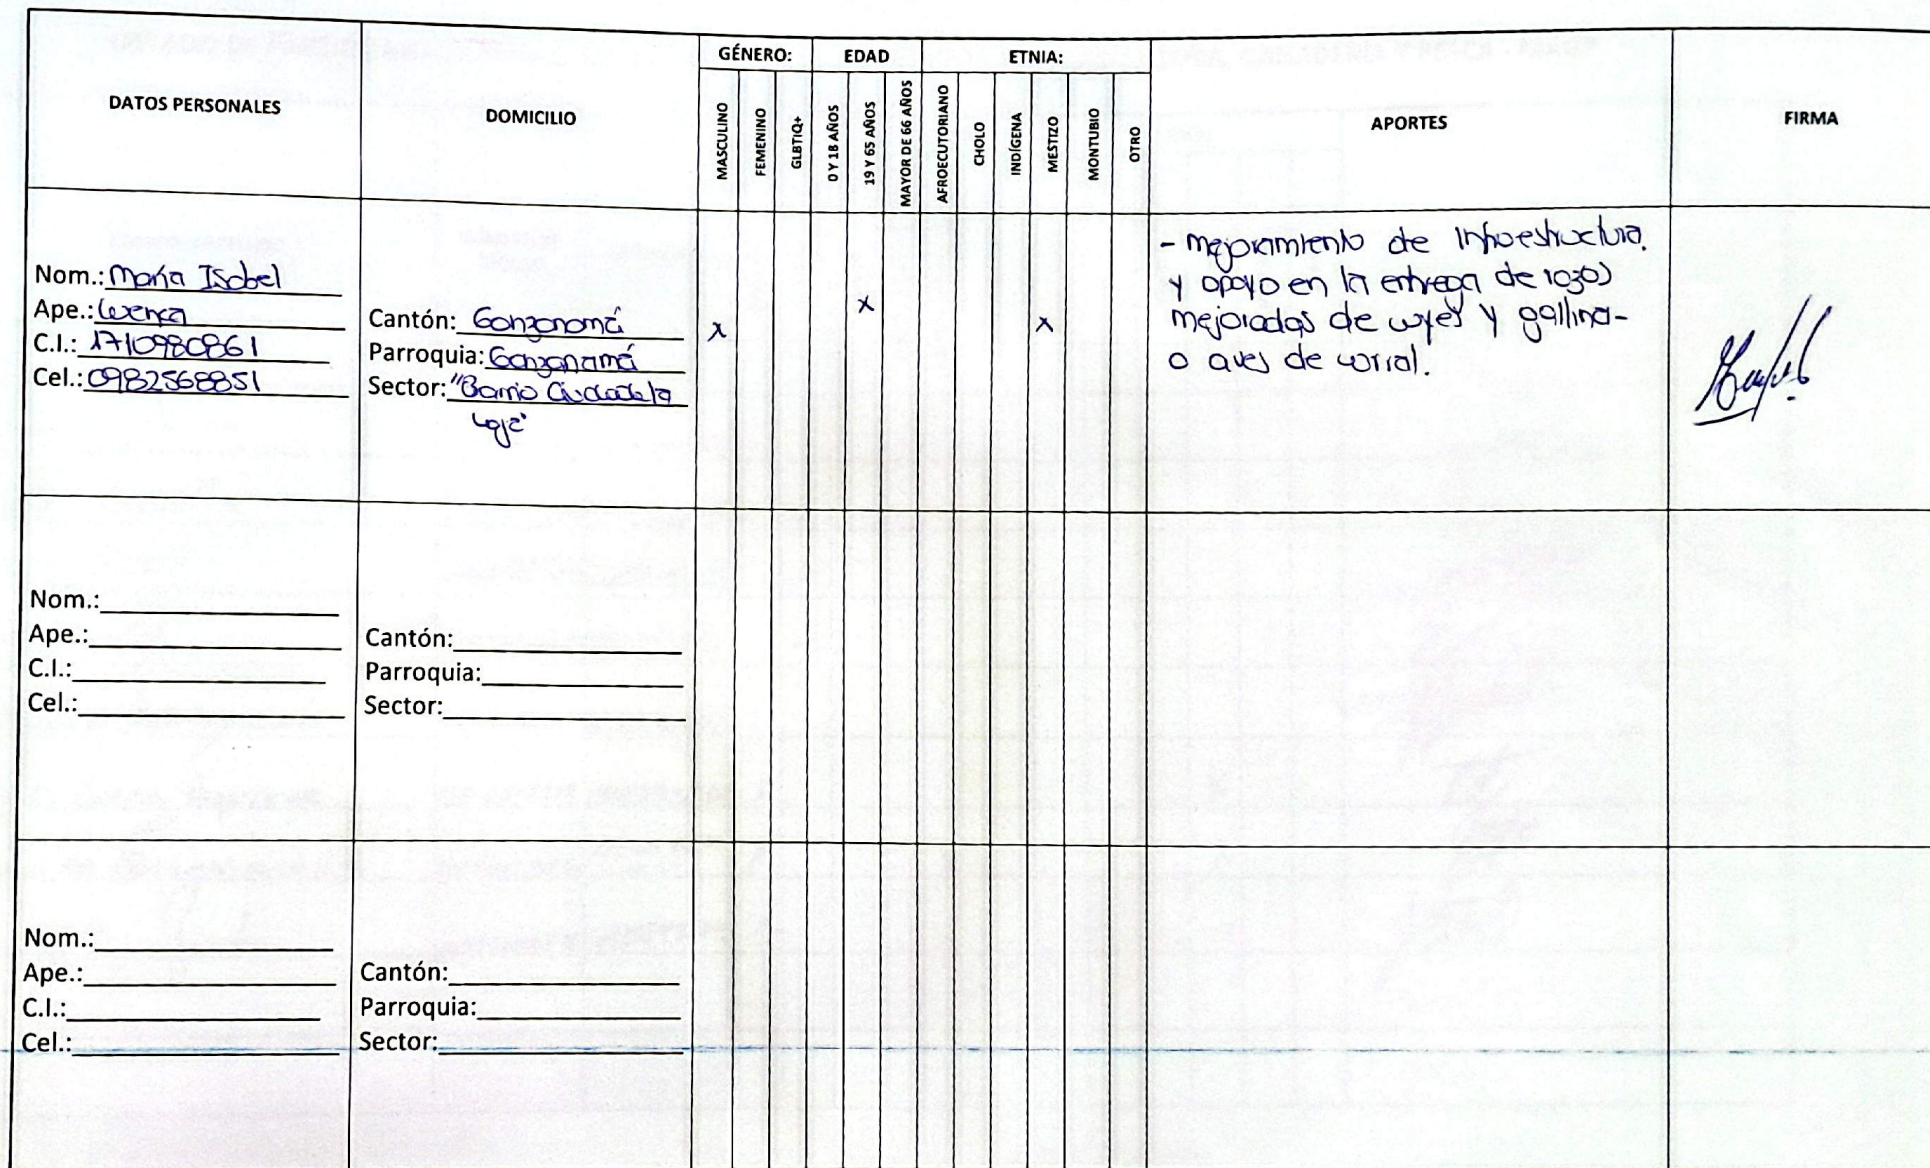 DATOS PERSONALES
DOMICILIO
GÉNERO:
MASCULINO
FEMENINO
GLBTIQ+
EDAD
0 Y 18 AÑOS
19 Y 65 AÑOS
MAYOR DE 66 AÑOS
ETNIA:
AFROECUTORIANO
CHOLO
INDÍGENA
MESTIZO
MONTUBIO
OTRO
APORTES
FIRMA
Nom.: María Isabel
Ape.: Cuenca
C.I.: 1710980861
Cel.: 0982568851
Cantón: Gonzanamá
Parroquia: Gonzanamá
Sector: "Barrio Ciudadela
Loja"
x
x
x
- mejoramiento de Infraestructura.
y apoyo en la entrega de razas
mejoradas de cuyes y gallina-
o aves de corral.
Nom.:
Ape.:
C.I.:
Cel.:
Cantón:
Parroquia:
Sector:
Nom.:
Ape.:
C.I.:
Cel.:
Cantón:
Parroquia:
Sector: